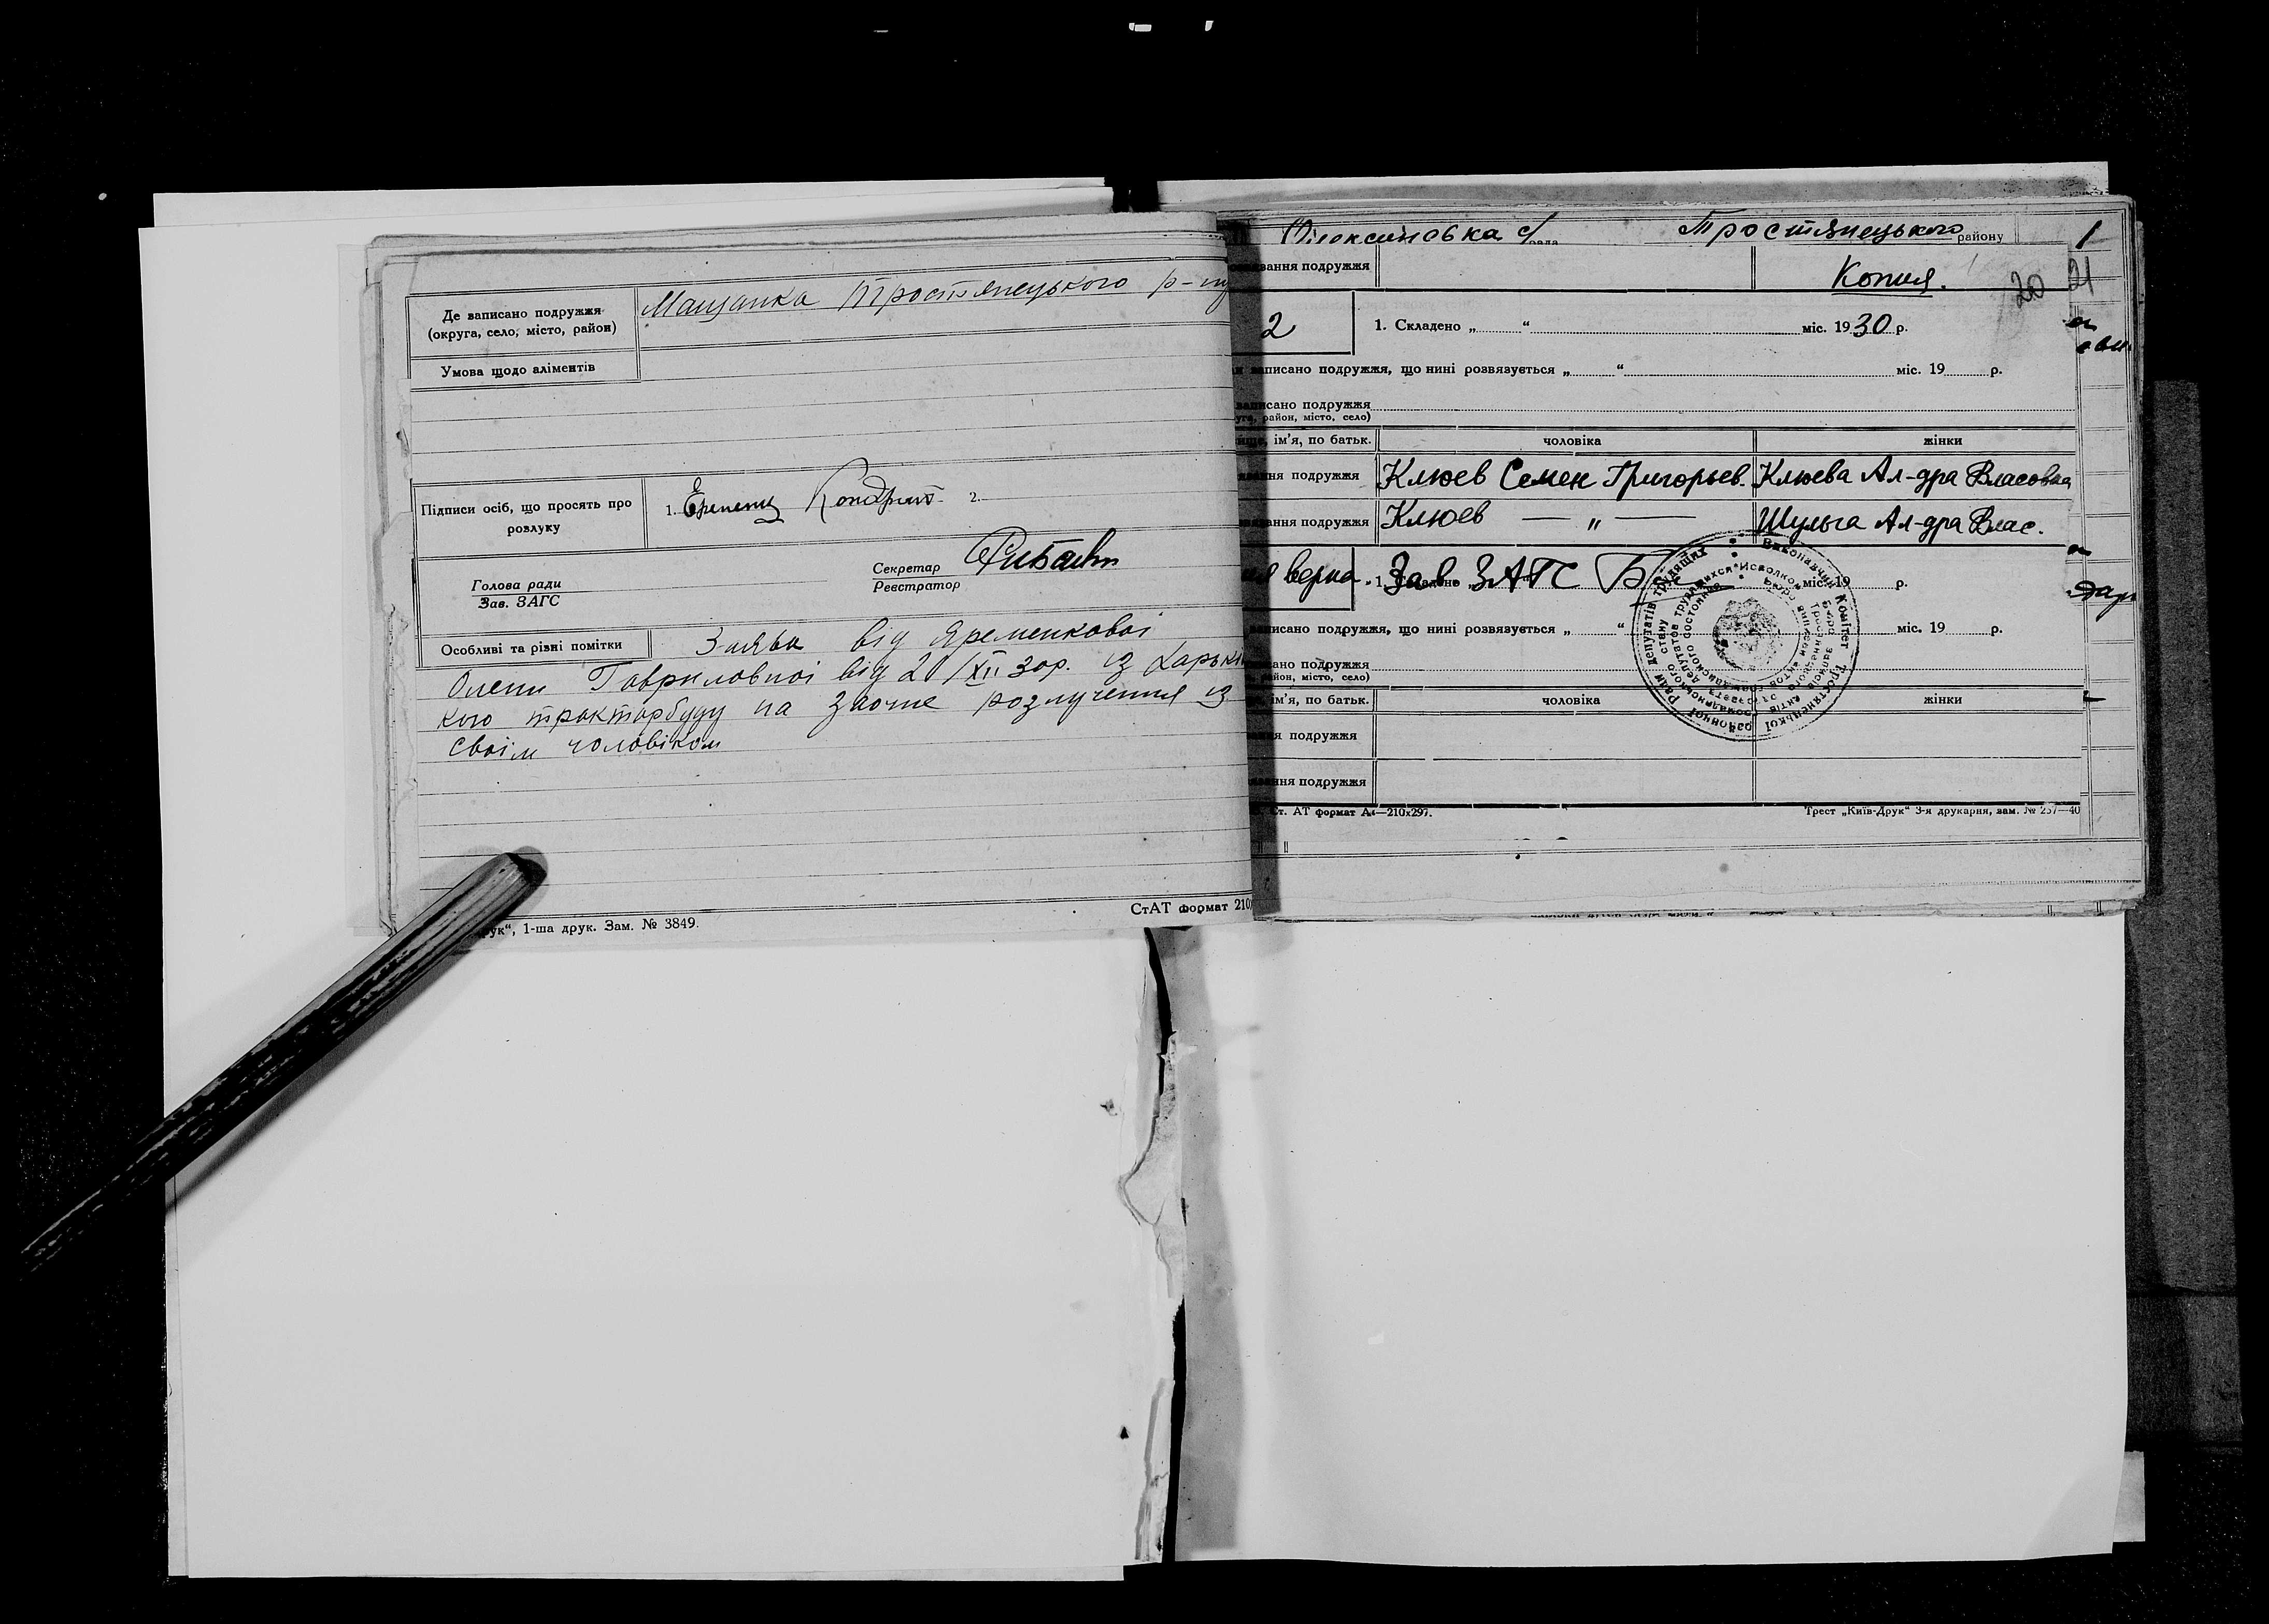 Де записано подружжя
(округа, село, місто, район)
Мащанка Тростянецького р-ну
Умова щодо аліментів
Підписи осіб, що просять про
розлуку
1. Еременк Кондрат 2.
Голова ради
Зав. ЗАГС
Секретар
Реєстратор
Особливі та різні помітки
Заява від Яременкової
Олени Гавриловної від 20/XII 30р. із Харьків
кого тракторбуду на заочне розлучення із
своїм чоловіком
друк", 1-ша друк. Зам. № 3849.
СтАТ формат 210
Олексиновка с/рада Тростянецького району 1
вання подружжя
Копия.
20 21
2
1. Складено „ “ міс. 1930 р.
записано подружжя, що нині розвязується „ “ міс. 19 р.
записано подружжя
район, місто, село)
ім'я, по батьк. чоловіка жінки
подружжя Клюев Семен Григорьев. Клюева Ал-дра Власовна
подружжя Клюев — „ — Шульга Ал-дра Влас.
верна. Зав. ЗАГС
1. Складено „ міс. 19 р.
записано подружжя, що нині розвязується „ “ міс. 19 р.
подружжя
район, місто, село)
ім'я, по батьк. чоловіка жінки
подружжя
подружжя
Ст. АТ формат А4—210х297.
Трест „Київ-Друк“ 3-я друкарня, зам. № 257—40
Виконавчий Комітет Тростянецької районної Ради депутатів трудящих